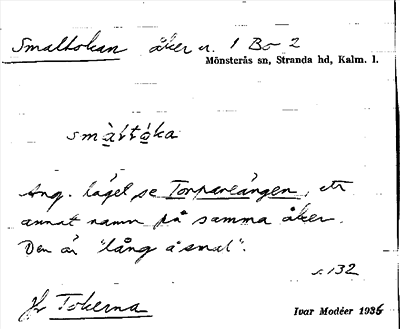 Smaltokan åker nr. 1 Bo 2
Mönsterås sn, Stranda hd, Kalm. l.
smàltòka
Ang. läget se Torpareängen, ett
annat namn på samma åker.
Den är "lång å smal".
s. 132
Jfr Tokerna
Ivar Modéer 1936